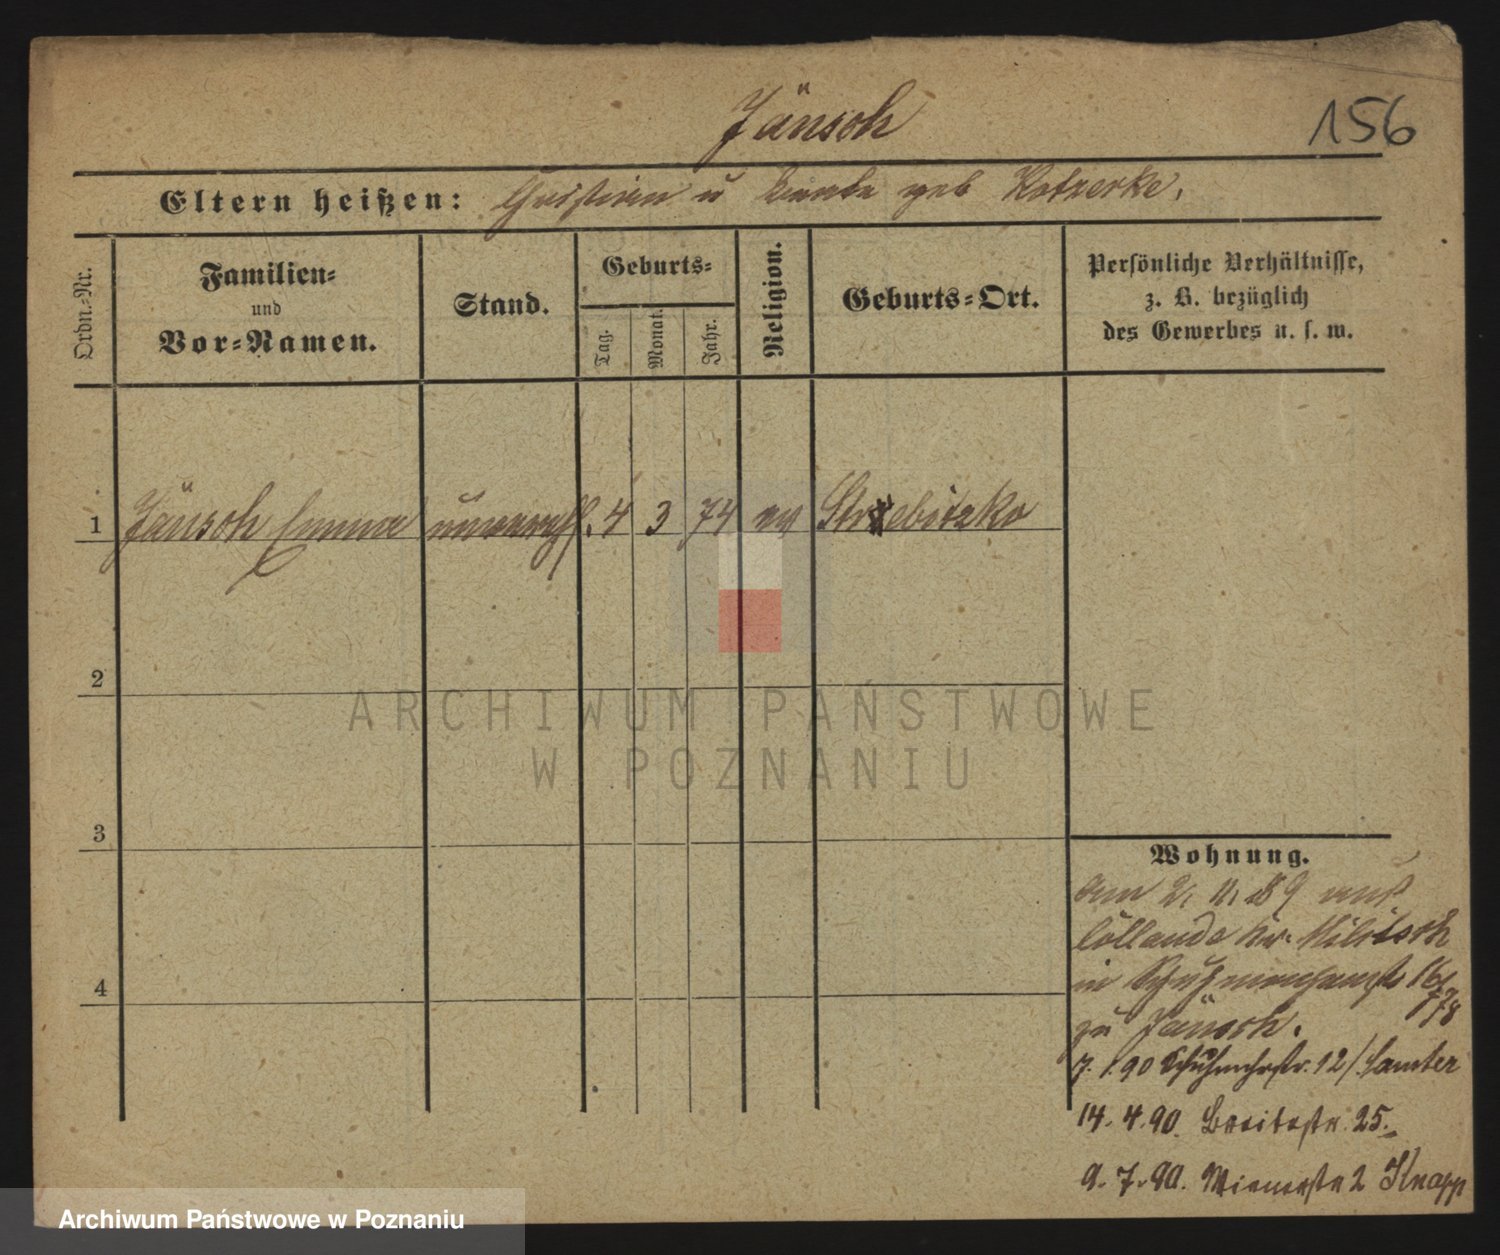 Jänsch
156
Eltern heißen: Christian u geb Kotzerke.
Ordn.-Nr.
Familien-
und
Vor-Namen.
Stand.
Geburts-
Tag.
Monat.
Jahr.
Religion.
Geburts-Ort.
Persönliche Verhältnisse,
z. B. bezüglich
des Gewerbes u. s. w.
1 Jänsch Emma unverehl. 4 3 74 ev Strebitzko
2
3
4
Wohnung.
am 2. 11. 89 aus
Kr. Militsch
in 16/
778
zu Jänsch.
7. 1. 90 Schuhmchrstr. 12/ Lamter
14. 4. 90. Breitestr. 25.
9. 7. 90. Wienerstr 2 Knapp
ARCHIWUM PAŃSTWOWE
W POZNANIU
Archiwum Państwowe w Poznaniu